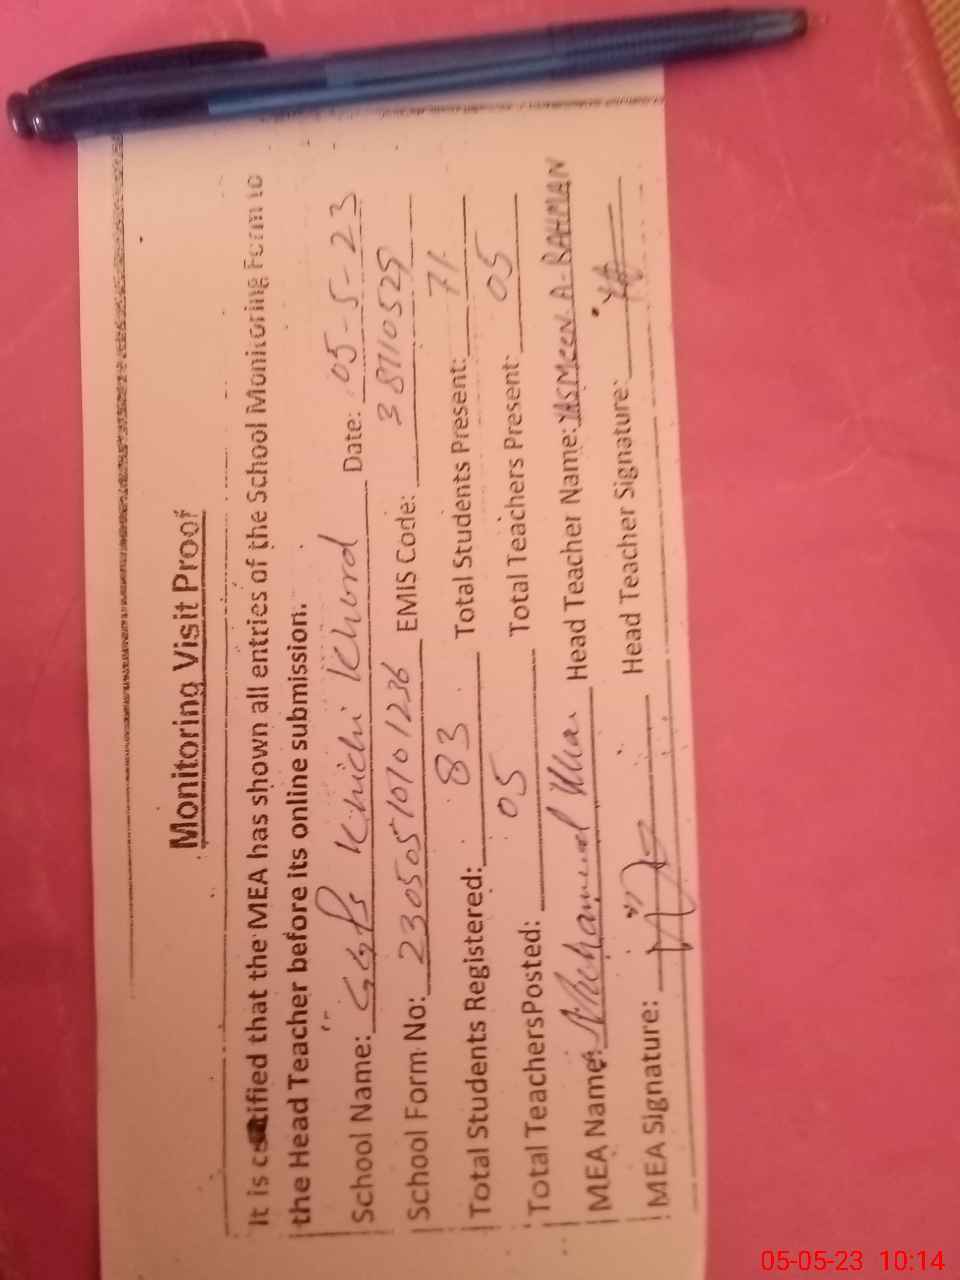 Monitoring Visit Proof
It is certified that the MEA has shown all entries of the School Monitoring Form to
the Head Teacher before its online submission.
School Name: GGPS Khichi Khord Date: 05-5-23
School Form No: 23050510701236 EMIS Code: 38110529
Total Students Registered: 83 Total Students Present: 71
Total TeachersPosted: 05 Total Teachers Present: 05
MEA Name: Muhammad Head Teacher Name: YASMEEN A-RAHMAN
MEA Signature: Head Teacher Signature:
05-05-23 10:14